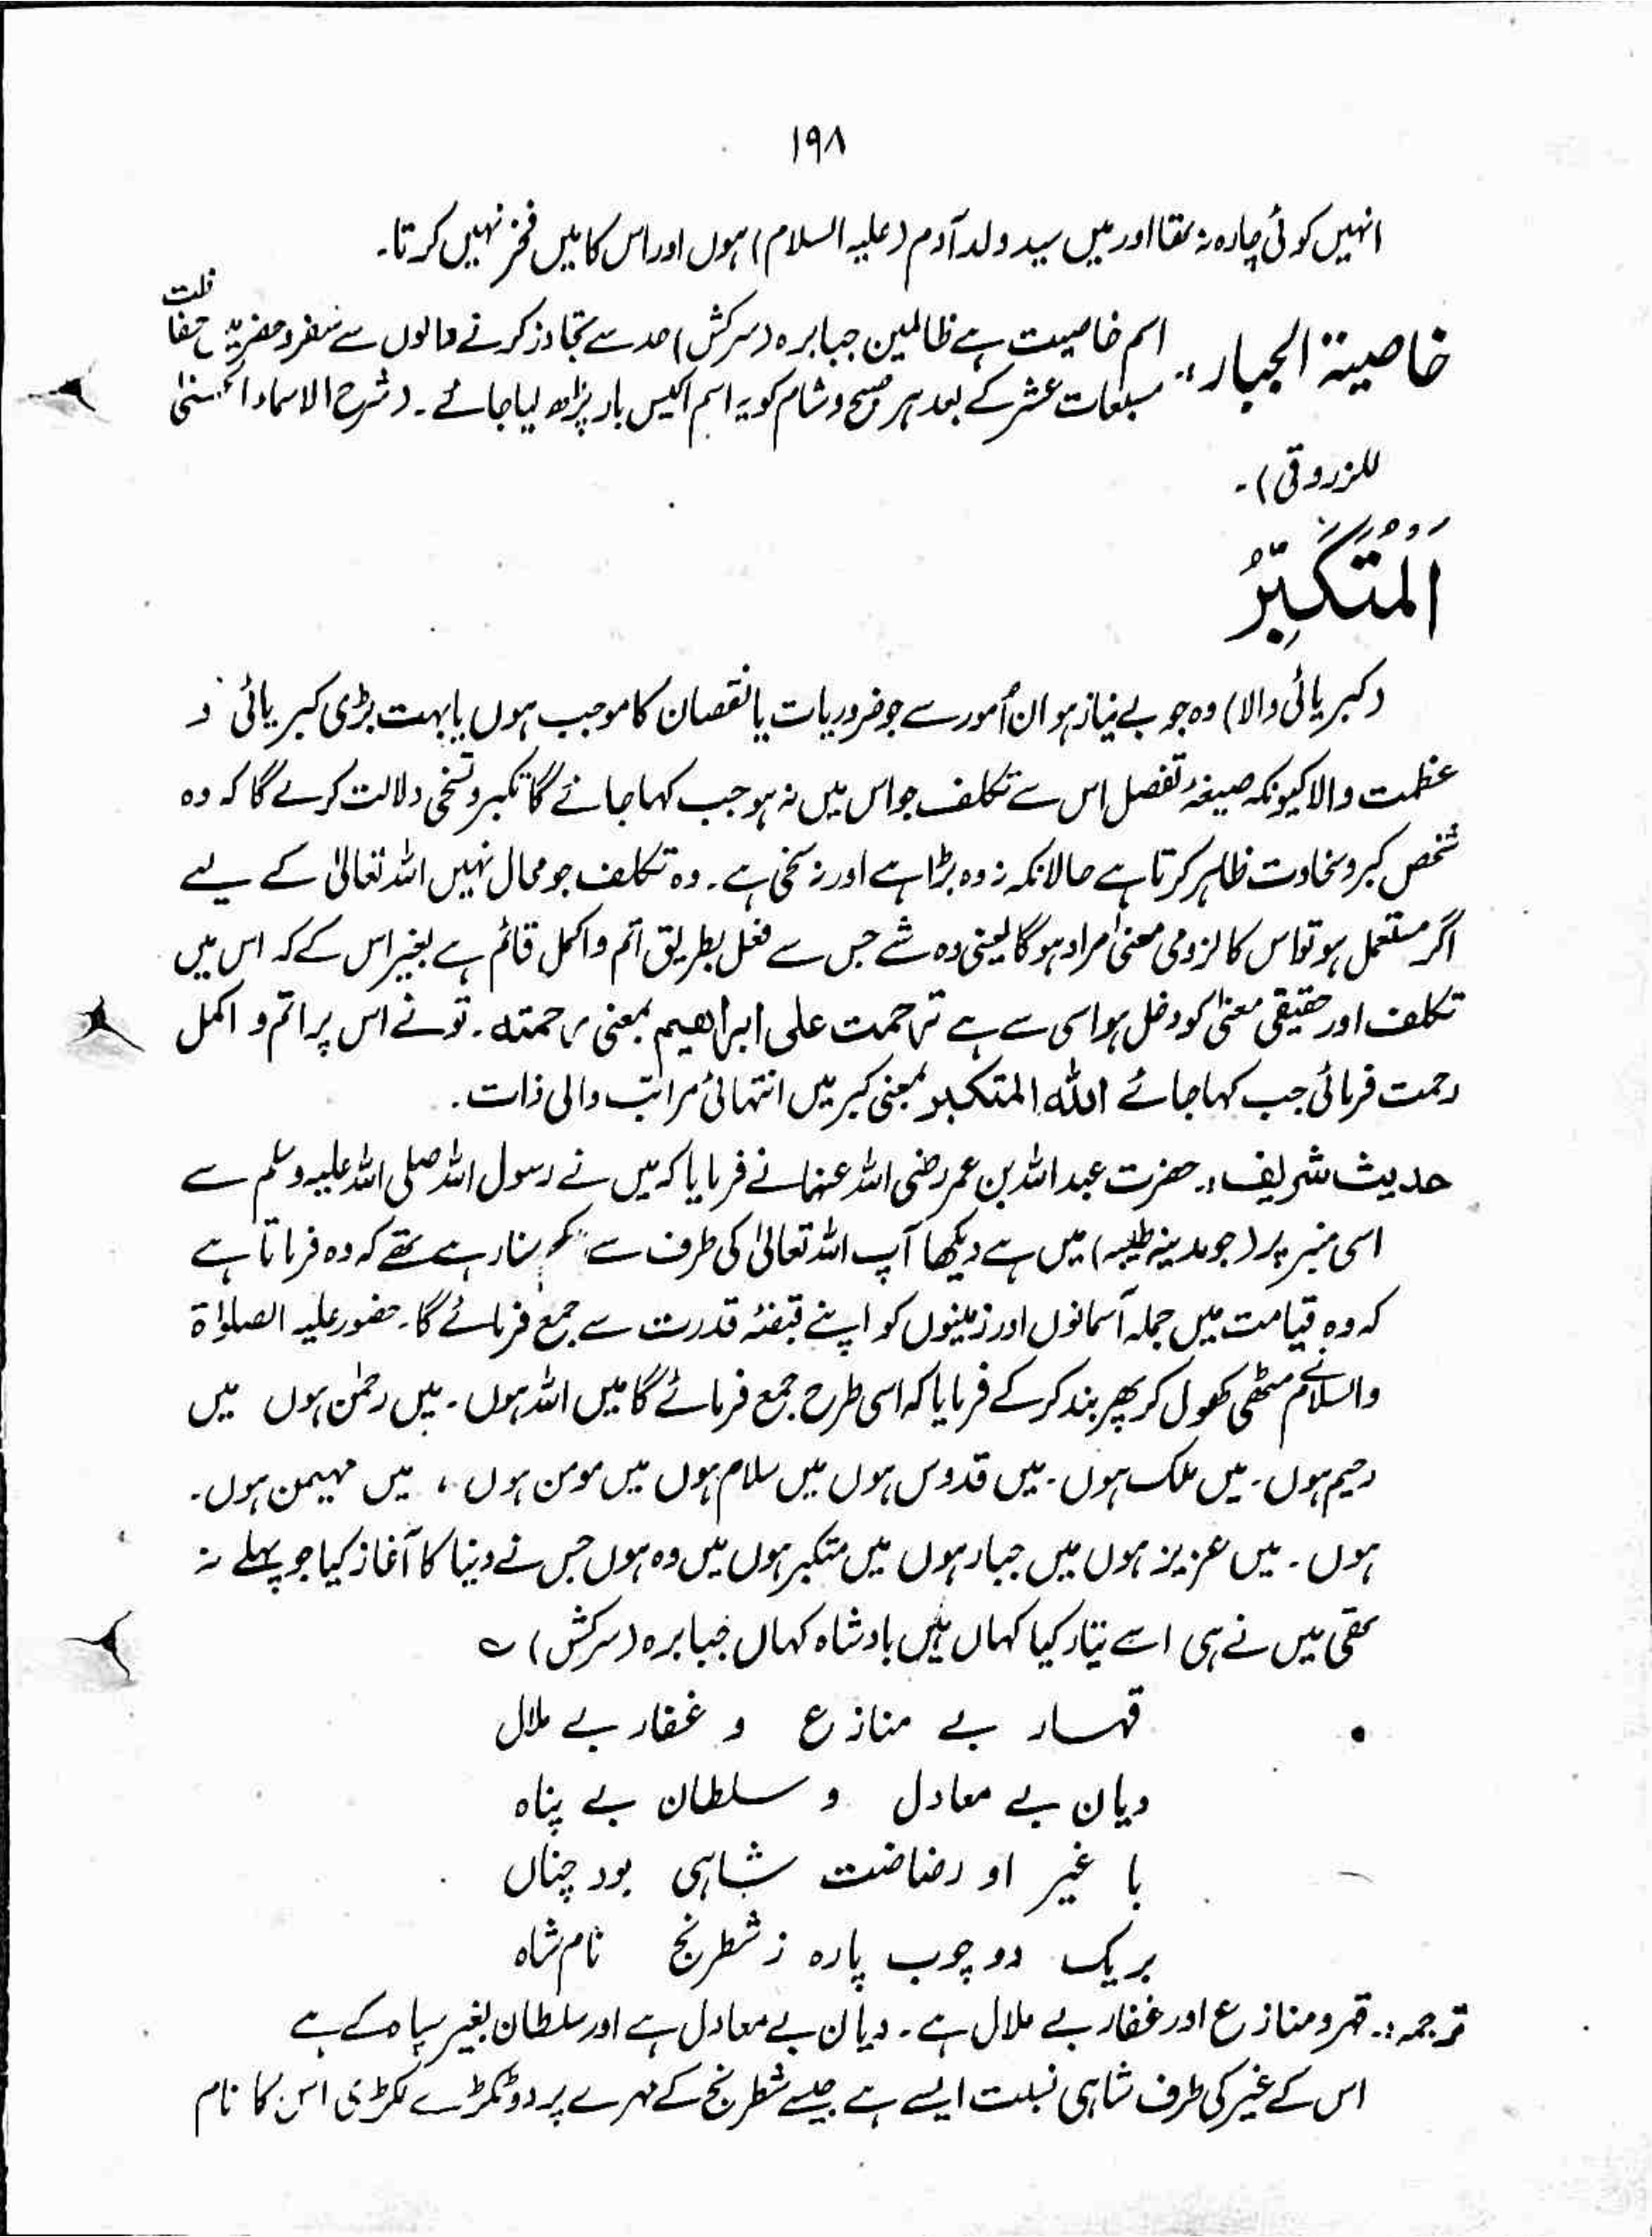 ۱۹۸
انہیں کوئی چارہ نہ تھا اور میں سید ولد آدم (علیہ السلام) ہوں اور اس کا میں فخر نہیں کرتا۔
خاصیۃ الجبار :۔ اسم خاصیت ہے ظالمین جبابرہ (سرکش) حد سے تجاوز کرنے والوں سے سفر و حضر میں حفاظت
مسبعات عشر کے بعد ہر صبح و شام کو یہ اسم اکیس بار پڑھ لیا جائے۔ (شرح الاسماء الحسنیٰ
للزروقی)۔
اَلْمُتَكَبِّرُ
(کبریائی والا) وہ جو بے نیاز ہو ان اُمور سے جو ضروریات یا نقصان کا موجب ہوں یا بہت بڑی کبریائی و
عظمت والا کیونکہ صیغہ تفصل اس سے تکلف جو اس میں نہ ہو جب کہا جائے گا تکبر و تسخی دلالت کرے گا کہ وہ
شخص کبر و سخاوت ظاہر کرتا ہے حالانکہ نہ وہ بڑا ہے اور نہ سخی ہے۔ وہ تکلف جو محال نہیں اللہ تعالیٰ کے لیے
اگر مستعمل ہو تو اس کا لزومی معنیٰ مراد ہوگا یعنی وہ شے جس سے فعل بطریق اتم و اکمل قائم ہے بغیر اس کے کہ اس میں
تکلف اور حقیقی معنیٰ کو دخل ہو اسی سے ہے ترحمت علی ابراھیم بمعنی رحمتہ۔ تو نے اس پر اتم و اکمل
رحمت فرمائی جب کہا جائے اللہ المتکبر بمعنی کبر میں انتہائی مراتب والی ذات۔
حدیث شریف :۔ حضرت عبداللہ بن عمر رضی اللہ عنہما نے فرمایا کہ میں نے رسول اللہ صلی اللہ علیہ وسلم سے
اسی منبر پر (جو مدینہ طیبہ) میں ہے دیکھا آپ اللہ تعالیٰ کی طرف سے سنا رہے تھے کہ وہ فرماتا ہے
کہ وہ قیامت میں جملہ آسمانوں اور زمینوں کو اپنے قبضۂ قدرت سے جمع فرمائے گا۔ حضور علیہ الصلوٰۃ
والسلام نے مٹھی کھول کر پھر بند کر کے فرمایا کہ اسی طرح جمع فرمائے گا میں اللہ ہوں۔ میں رحمٰن ہوں میں
رحیم ہوں۔ میں ملک ہوں۔ میں قدوس ہوں میں سلام ہوں میں مومن ہوں، میں مہیمن ہوں۔
ہوں۔ میں عزیز ہوں میں جبار ہوں میں متکبر ہوں میں وہ ہوں جس نے دنیا کا آغاز کیا جو پہلے نہ
تھی میں نے ہی اسے تیار کیا کہاں ہیں بادشاہ کہاں جبابرہ (سرکش) ؎
قہار بے منازع و غفار بے ملال
دیان بے معادل و سلطان بے پناہ
با غیر او رضاضت شاہی بود چناں
بریک دو چوب پارہ ز شطرنج نام شاہ
ترجمہ :۔ قہر و منازع اور غفار بے ملال ہے۔ دیان بے معادل ہے اور سلطان بغیر سپاہ کے ہے
اس کے غیر کی طرف شاہی نسبت ایسے ہے جیسے شطرنج کے مہرے پر دو ٹکڑے لکڑی اس کا نام